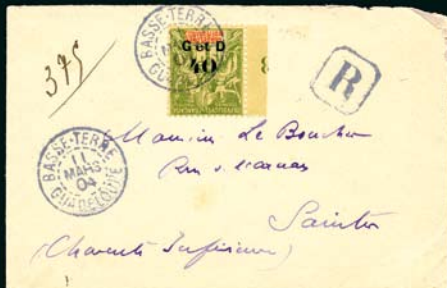 BASSE-TERRE
GUADELOUPE
G & D
40
375
R
BASSE-TERRE
11
MARS
04
GUADELOUPE
Monsieur Le Boucher
Saintes
(Charente Inférieure)